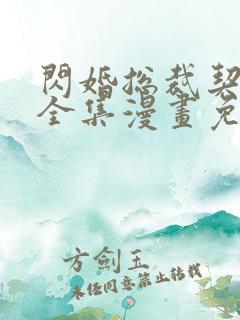 閃婚總裁契
全集漫畫免
方劍玉
未經同意禁止轉載